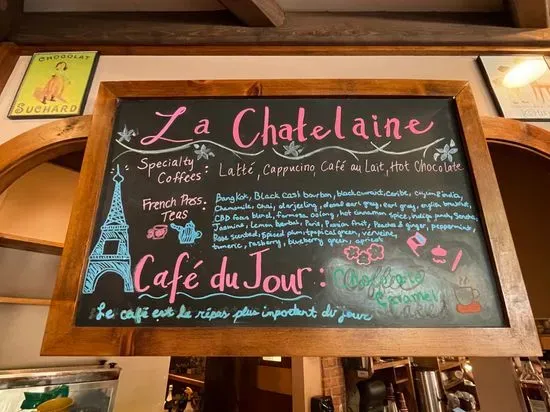 CHOCOLAT
SUCHARD
La Chatelaine
Specialty Coffees: Latté, Cappucino, Café au Lait, Hot Chocolate
French Press Teas:
Bangkok, Black cask bourbon, black currant, caribe,
Chamomile, Chai, darjeeling, decaf earl gray, earl gray, english breakfast
CBD focus blend, formosa oolong, hot cinnamon spice, indigo punch, Sencha,
Jasmine, Lemon herbal, Paris, Passion fruit, Peache & ginger, peppermint,
Rose scented, spiced plum, tropical green, verveine,
tumeric, rasberry, blueberry green, apricot
Café du Jour:
Caramel
Le café est le répas plus important du jour